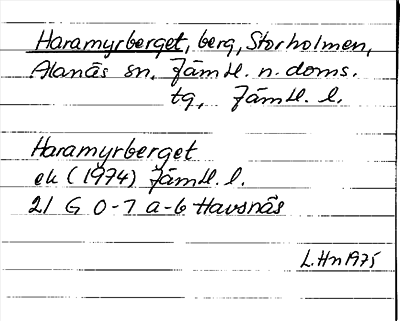 Haramyrberget, berg, Storholmen,
Alanäs sn, Jämtl. n. doms.
tg, Jämtl. l.
Haramyrberget
ek (1974) Jämtl. l.
21 G 0-1 a-b Havsnäs
L.Hn 1975